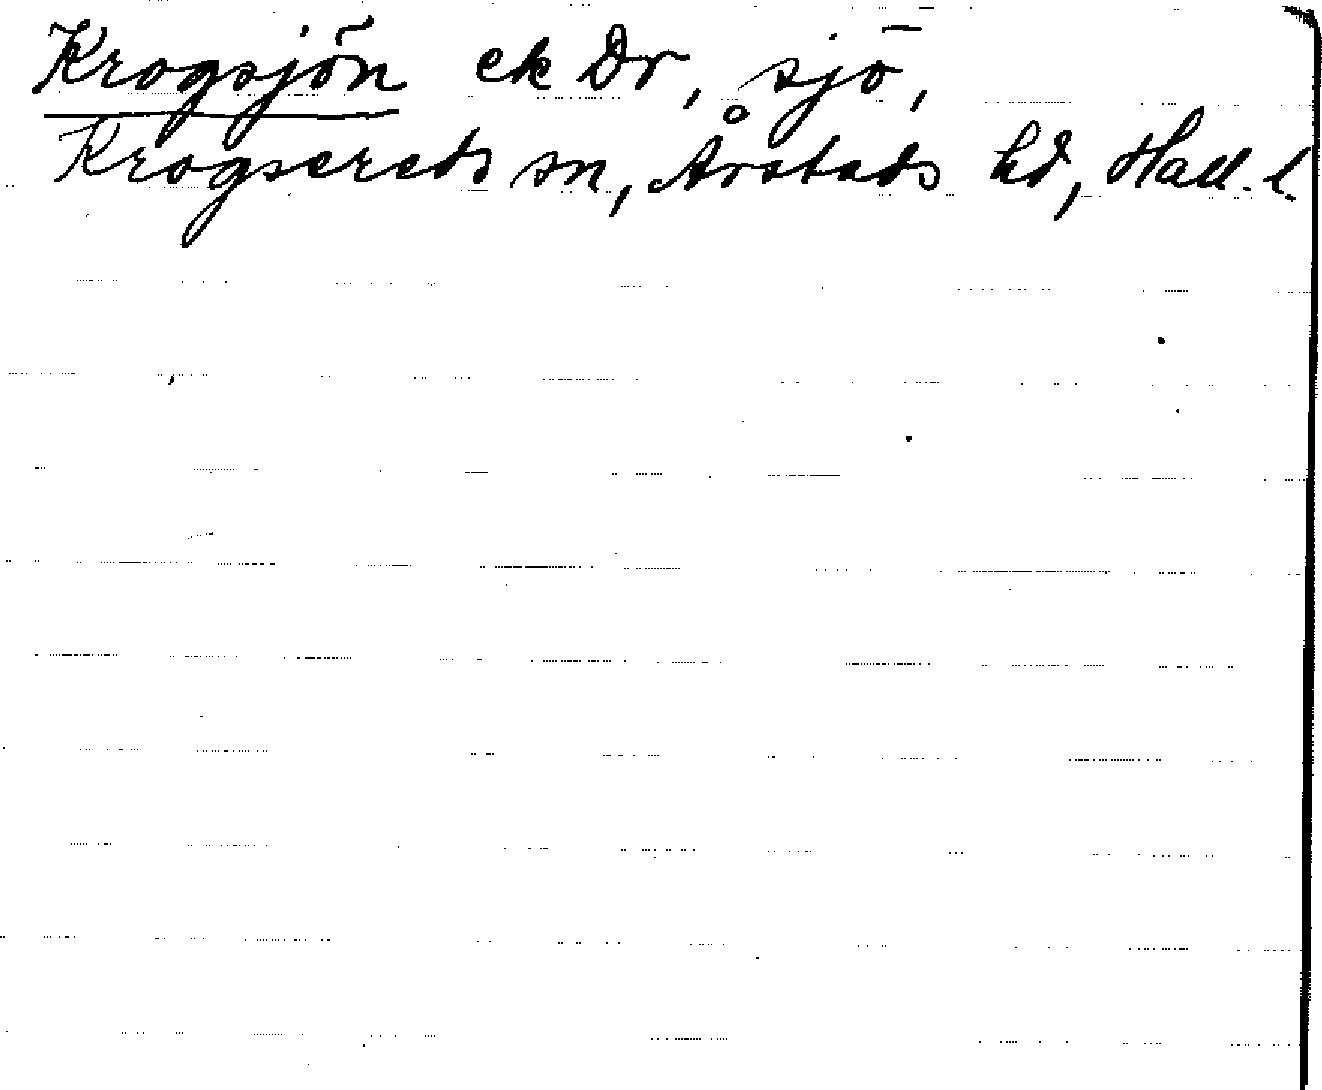 Krogsjön ek Dr, sjö,
Krogsereds sn, Årstads hd, Hall. l.